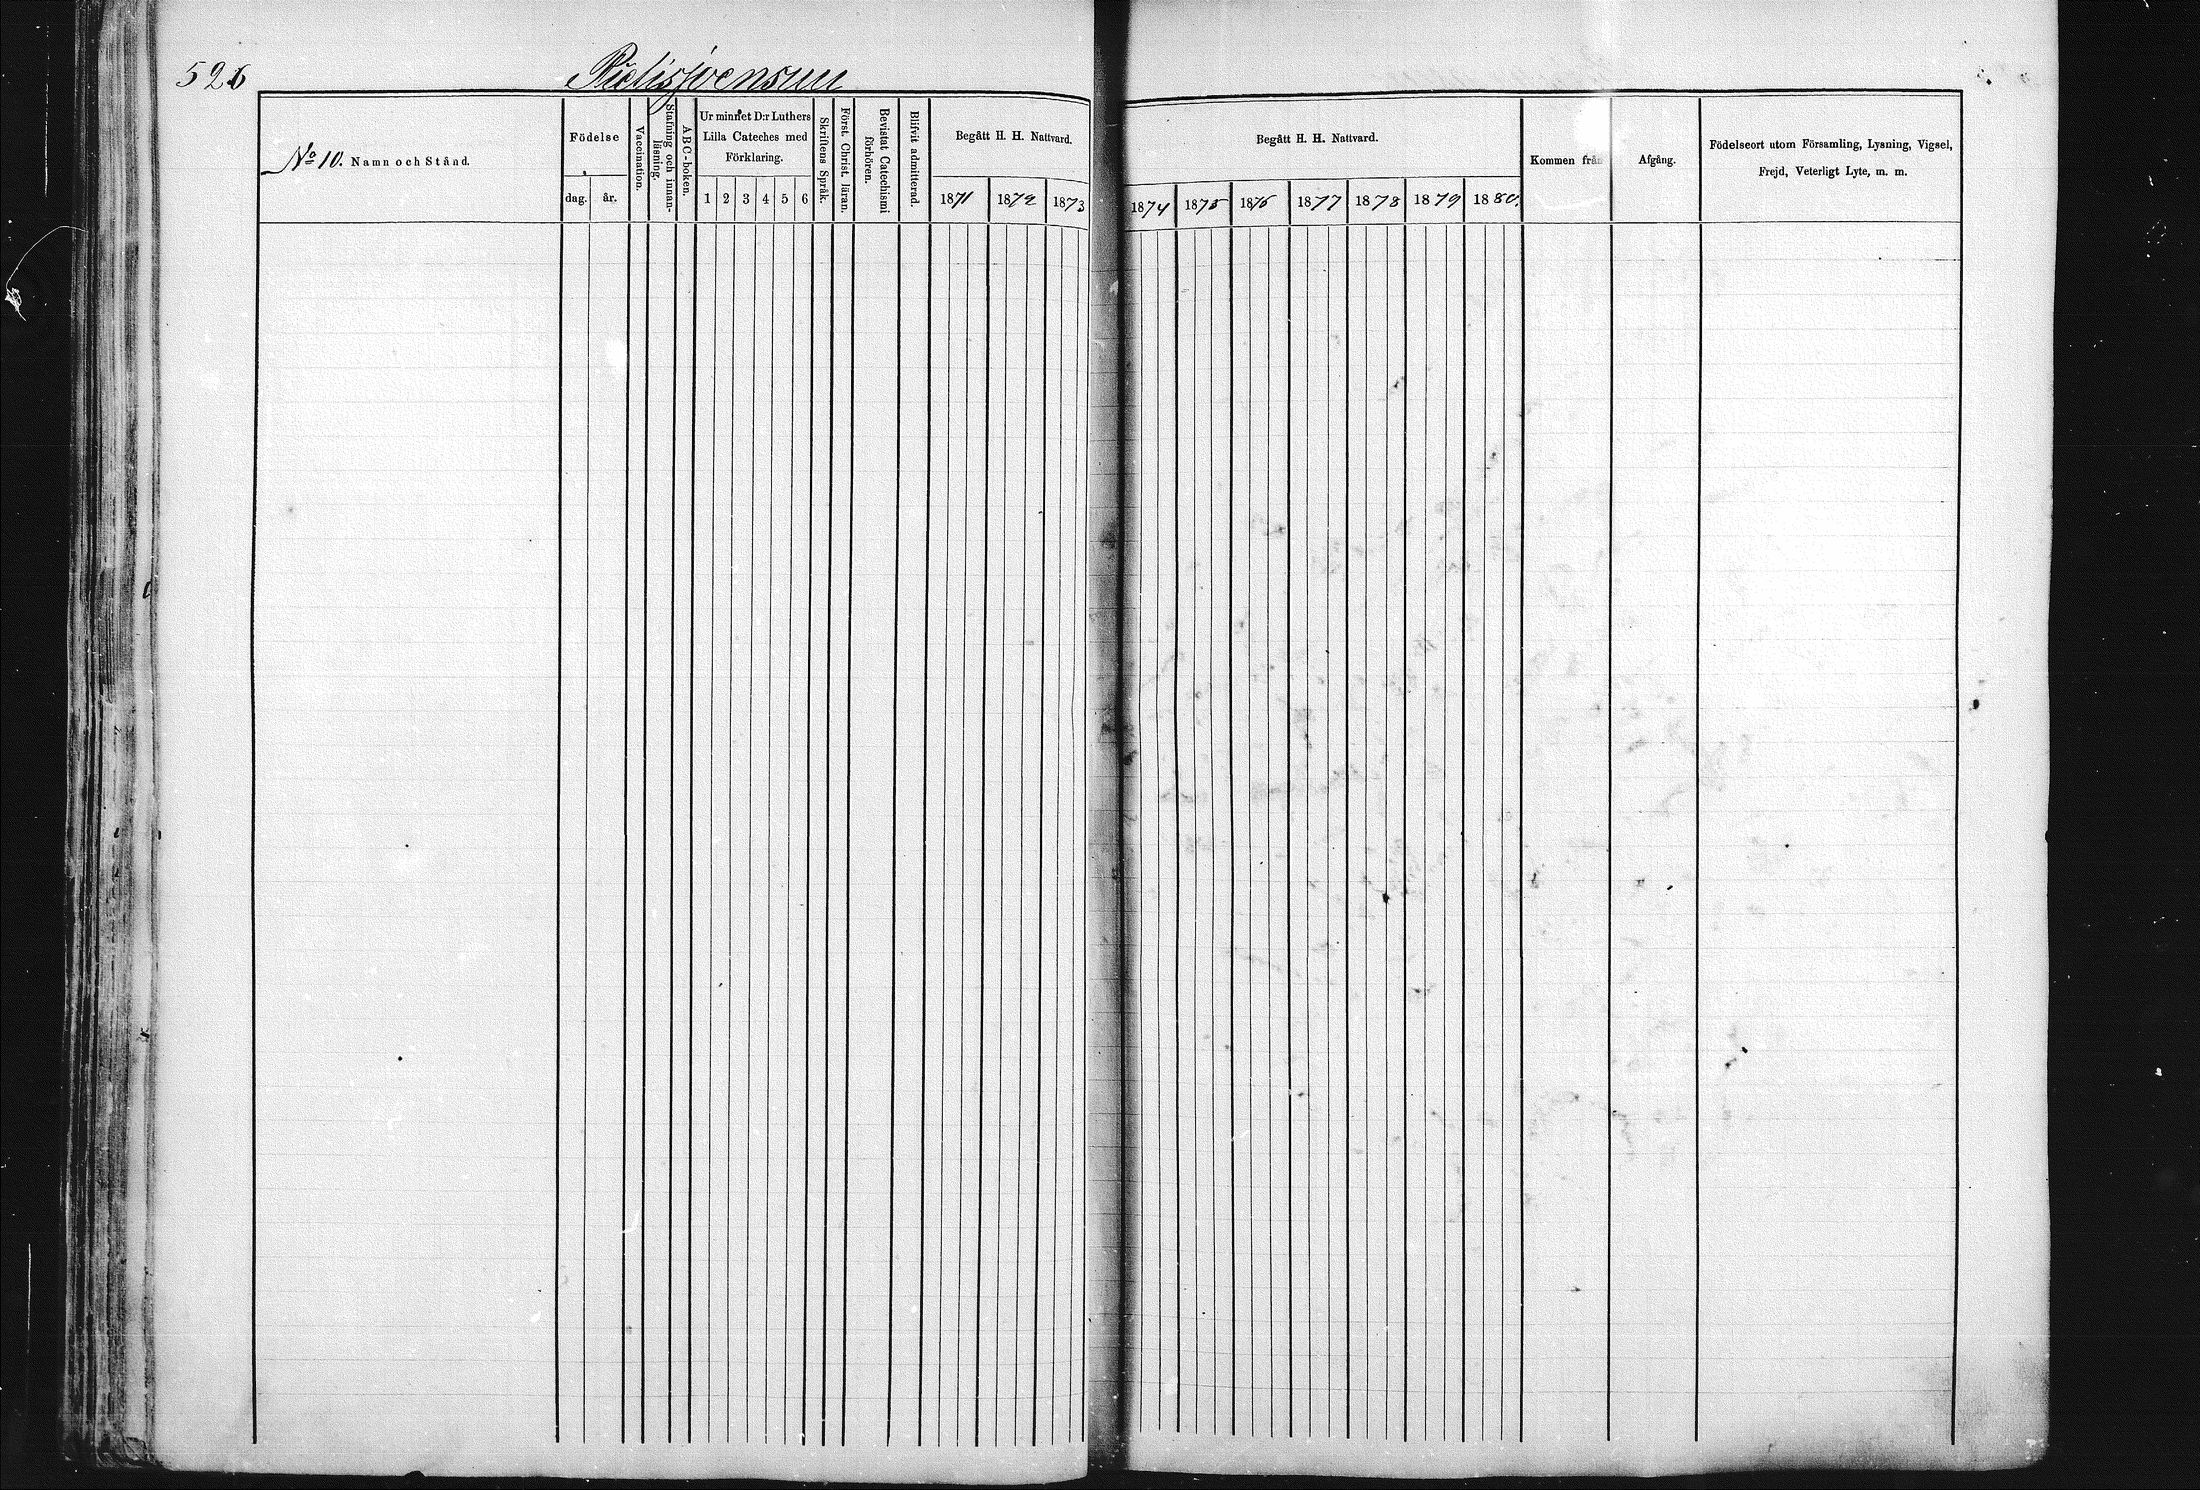 526
Pielisjoensuu
No 10. Namn och Stånd.
Födelse
dag. år.
Vaccination.
Stafning och innan-
läsning.
ABC-boken.
Ur minnet D:r Luthers
Lilla Cateches med
Förklaring.
1 2 3 4 5 6
Skriftens Språk.
Först. Christ. läran.
Bevistat Catechismi
förhören.
Blifvit admitterad.
Begått H. H. Nattvard.
1871 1872 1873
Begått H. H. Nattvard.
1874 1875 1876 1877 1878 1879 1880.
Kommen från
Afgång.
Födelseort utom Församling, Lysning, Vigsel,
Frejd, Veterligt Lyte, m. m.